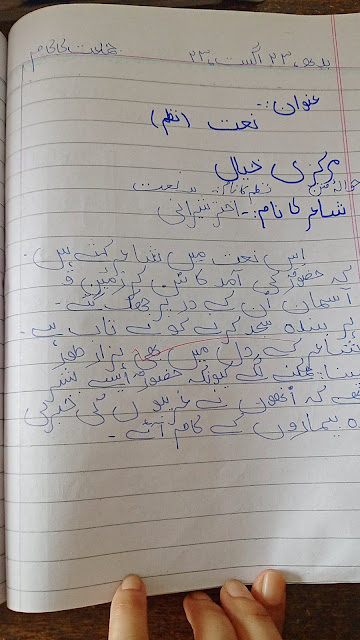 بدھ، ۲۳ اگست، ۲۳ جماعت کا کام
عنوان:-
نعت (نظم)
مرکزی خیال
حوالہ متن نظم کا نام:- نعت
شاعر کا نام:- اختر شیرانی
اس نعت میں شاعر کہتے ہیں -
کہ حضورؐ کی آمد کا سن کر زمین و
آسمان ان کے در پر جھک گئے -
ہر بندہ سجدہ کرنے کو بے تاب ہے -
شاعر کے دل میں ہزار طور
سینا چمکنے لگے کیونکہ حضورؐ ایسے بشر
تھے کہ انھوں نے غریبوں کی خبر کی
بیماروں کے کام آئے -